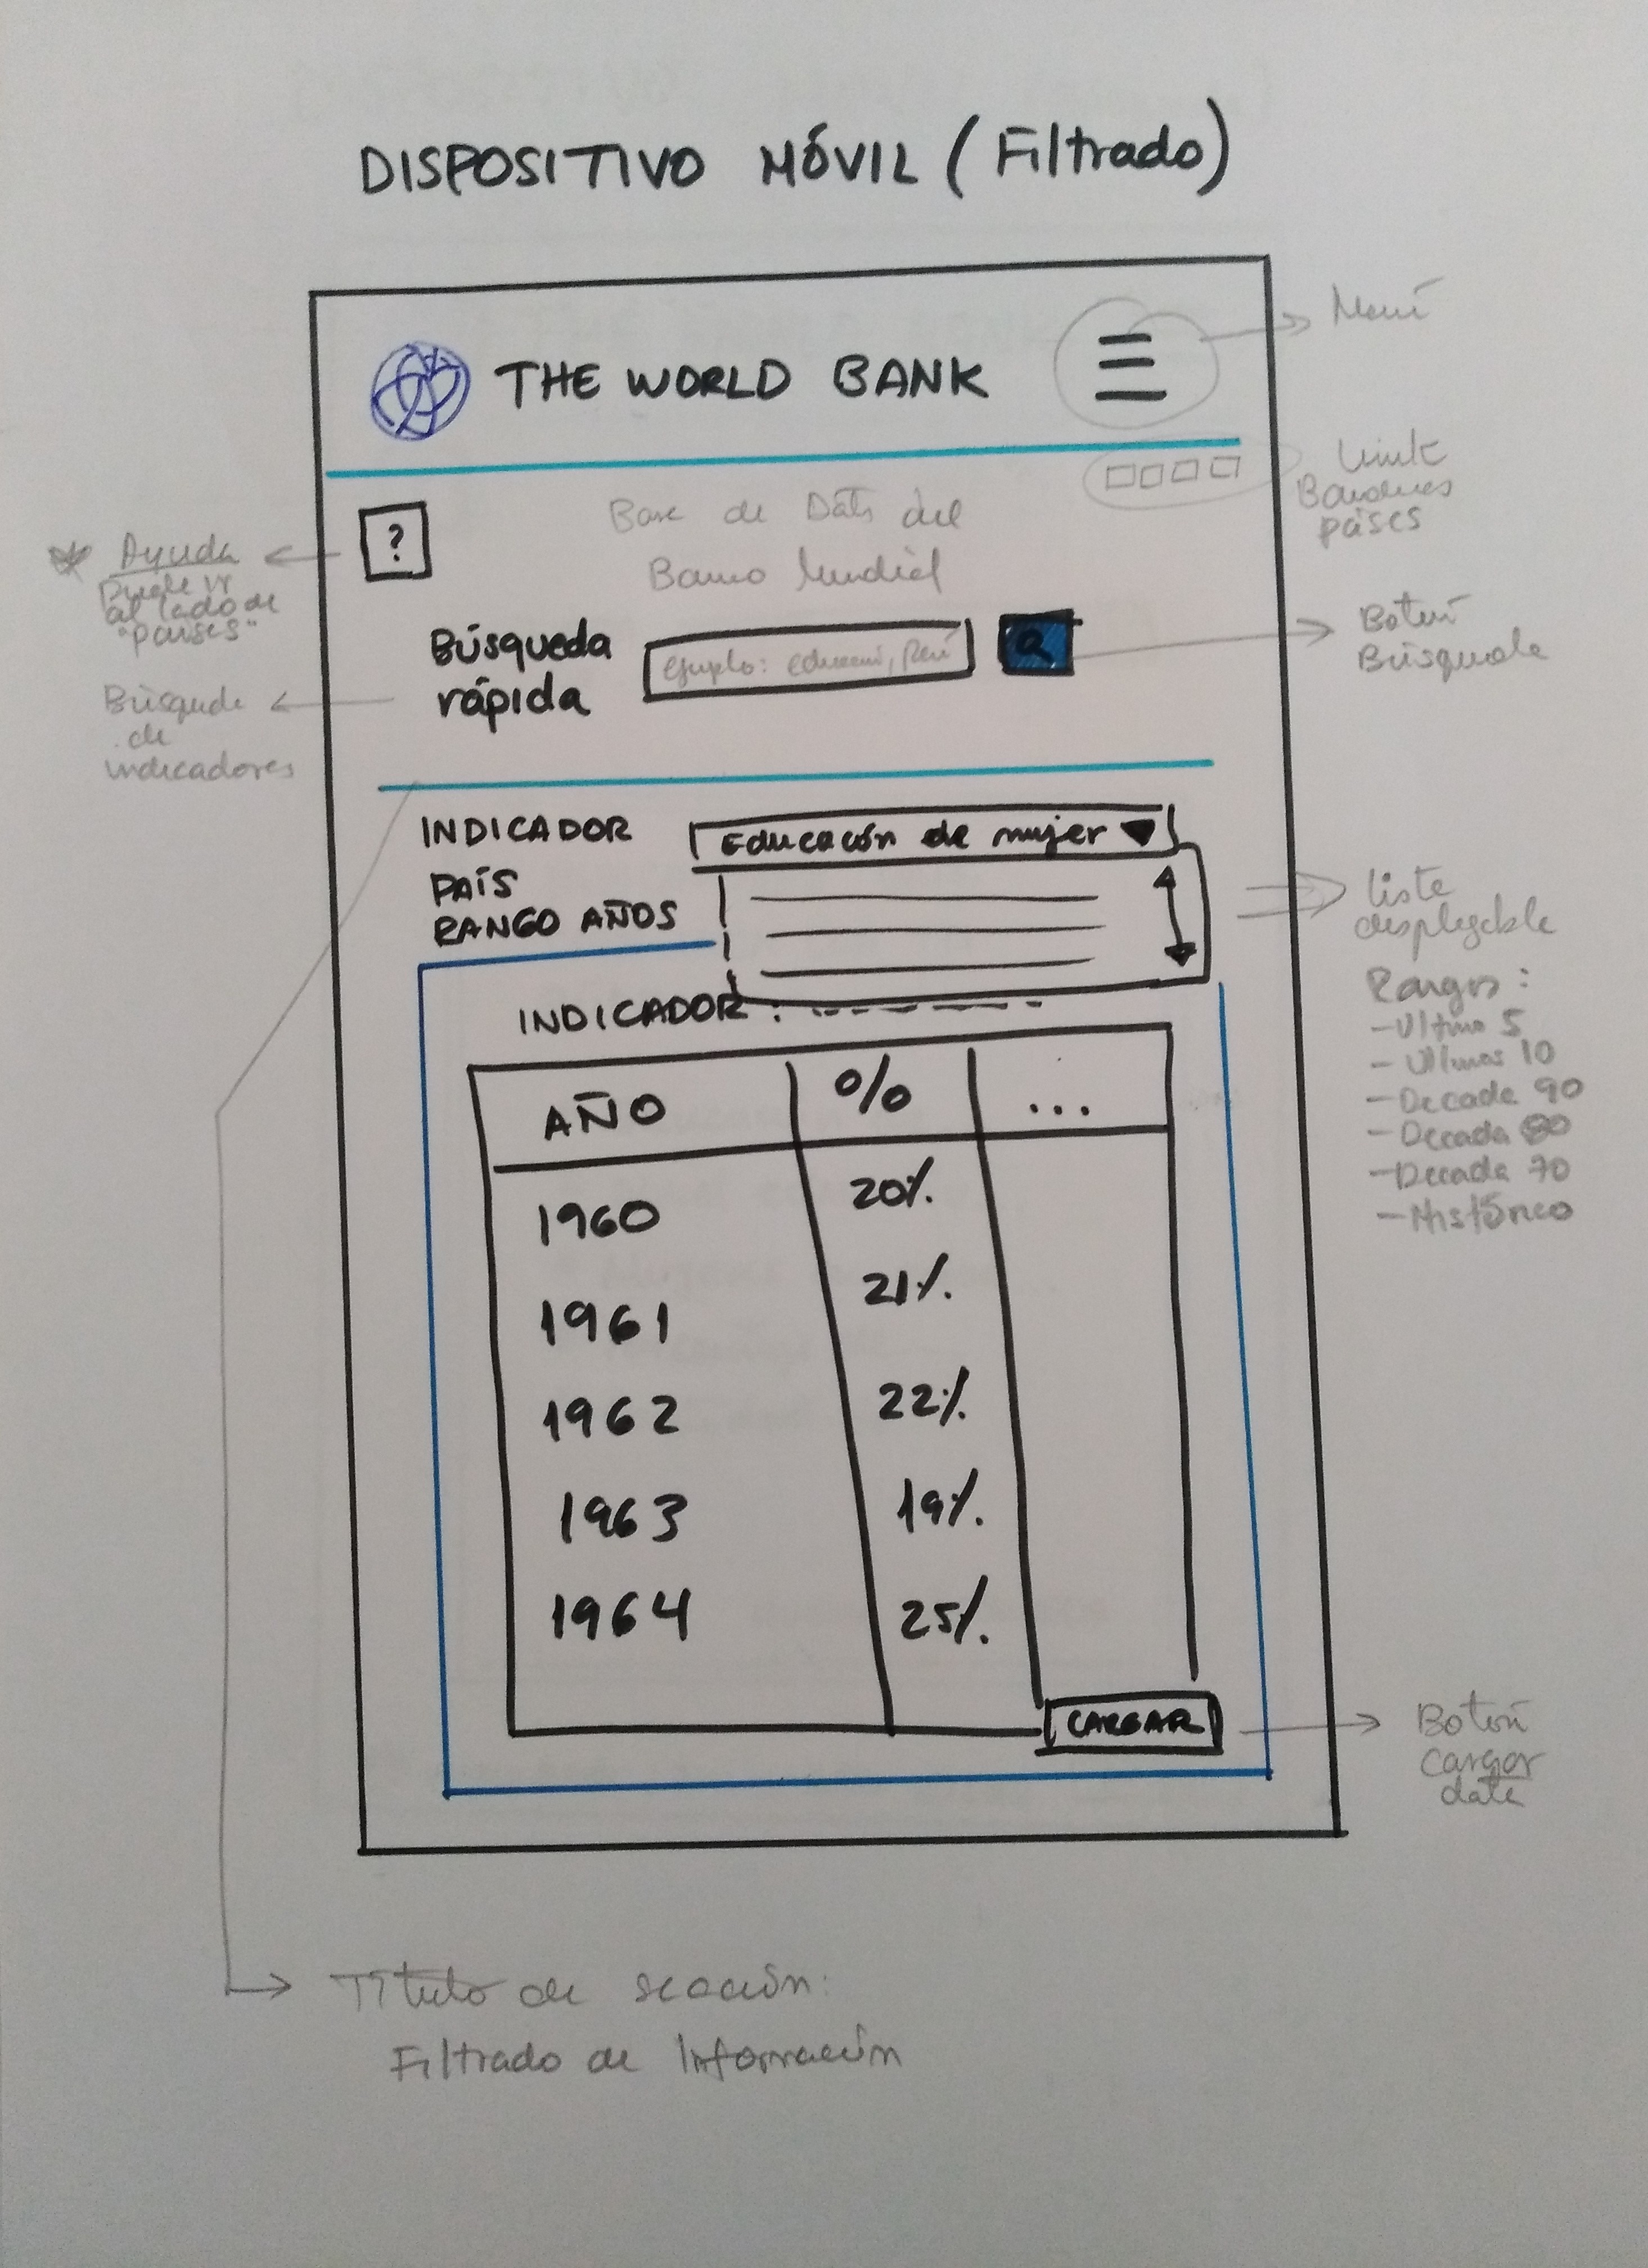 DISPOSITIVO MÓVIL (Filtrado)
THE WORLD BANK
Menú
Banderas
países
?
Base de Datos del
Banco Mundial
* Ayuda
Puede ir
al lado de
"países"
Búsqueda
rápida
ejemplo: educación, Perú
Botón
Búsqueda
Búsqueda
de
indicadores
INDICADOR
Educación de mujer
PAÍS
RANGO AÑOS
lista
desplegable
Rangos:
- Ultimo 5
- Ultimos 10
- Decada 90
- Decada 80
- Decada 70
- Histórico
INDICADOR:
AÑO % ...
1960 20%
1961 21%
1962 22%
1963 19%
1964 25%
CARGAR
Botón
cargar
data
Título de sección:
Filtrado de Información